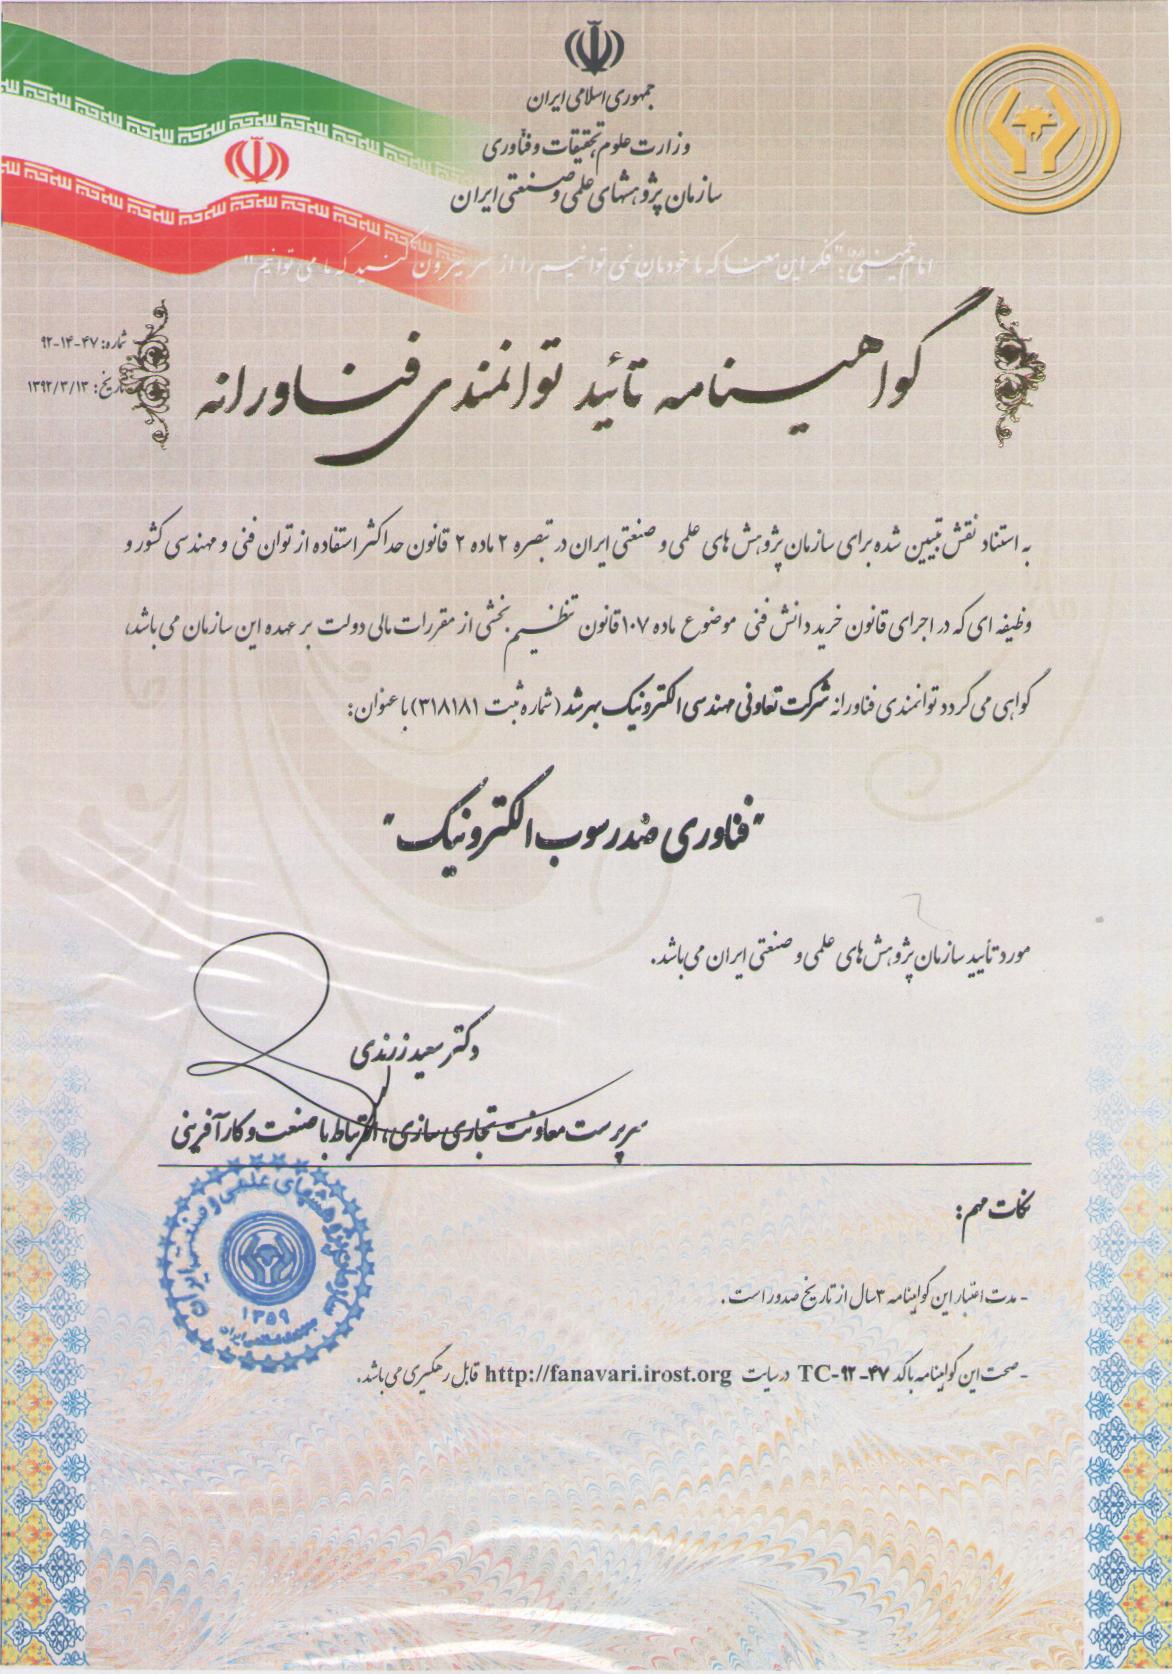 جمهوری اسلامی ایران
وزارت علوم، تحقیقات و فناوری
سازمان پژوهشهای علمی و صنعتی ایران
امام خمینی: "فکر این معنا که ما خودمان نمی توانیم را از سر بیرون کنید که ما می توانیم"
شماره: ۴۷-۱۴-۹۲
تاریخ: ۱۳۹۲/۳/۱۳
گواهینامه تائید توانمندی فناورانه
به استناد نقش تبیین شده برای سازمان پژوهش های علمی و صنعتی ایران در تبصره ۲ ماده ۲ قانون حداکثر استفاده از توان فنی و مهندسی کشور و
وظیفه ای که در اجرای قانون خرید دانش فنی موضوع ماده ۱۰۷ قانون تنظیم بخشی از مقررات مالی دولت بر عهده این سازمان می باشد،
گواهی می گردد توانمندی فناورانه شرکت تعاونی مهندسی الکترونیک بهرشد (شماره ثبت ۳۱۸۱۸۱) با عنوان:
"فناوری ضد رسوب الکترونیک"
مورد تأیید سازمان پژوهش های علمی و صنعتی ایران می باشد.
دکتر سعید زرندی
سرپرست معاونت تجاری سازی، ارتباط با صنعت و کارآفرینی
سازمان پژوهشهای علمی و صنعتی ایران
۱۳۵۹
جمهوری اسلامی ایران
نکات مهم:
- مدت اعتبار این گواهینامه ۳ سال از تاریخ صدور است.
- صحت این گواهینامه با کد TC-۹۲-۴۷ در سایت http://fanavari.irost.org قابل رهگیری می باشد.